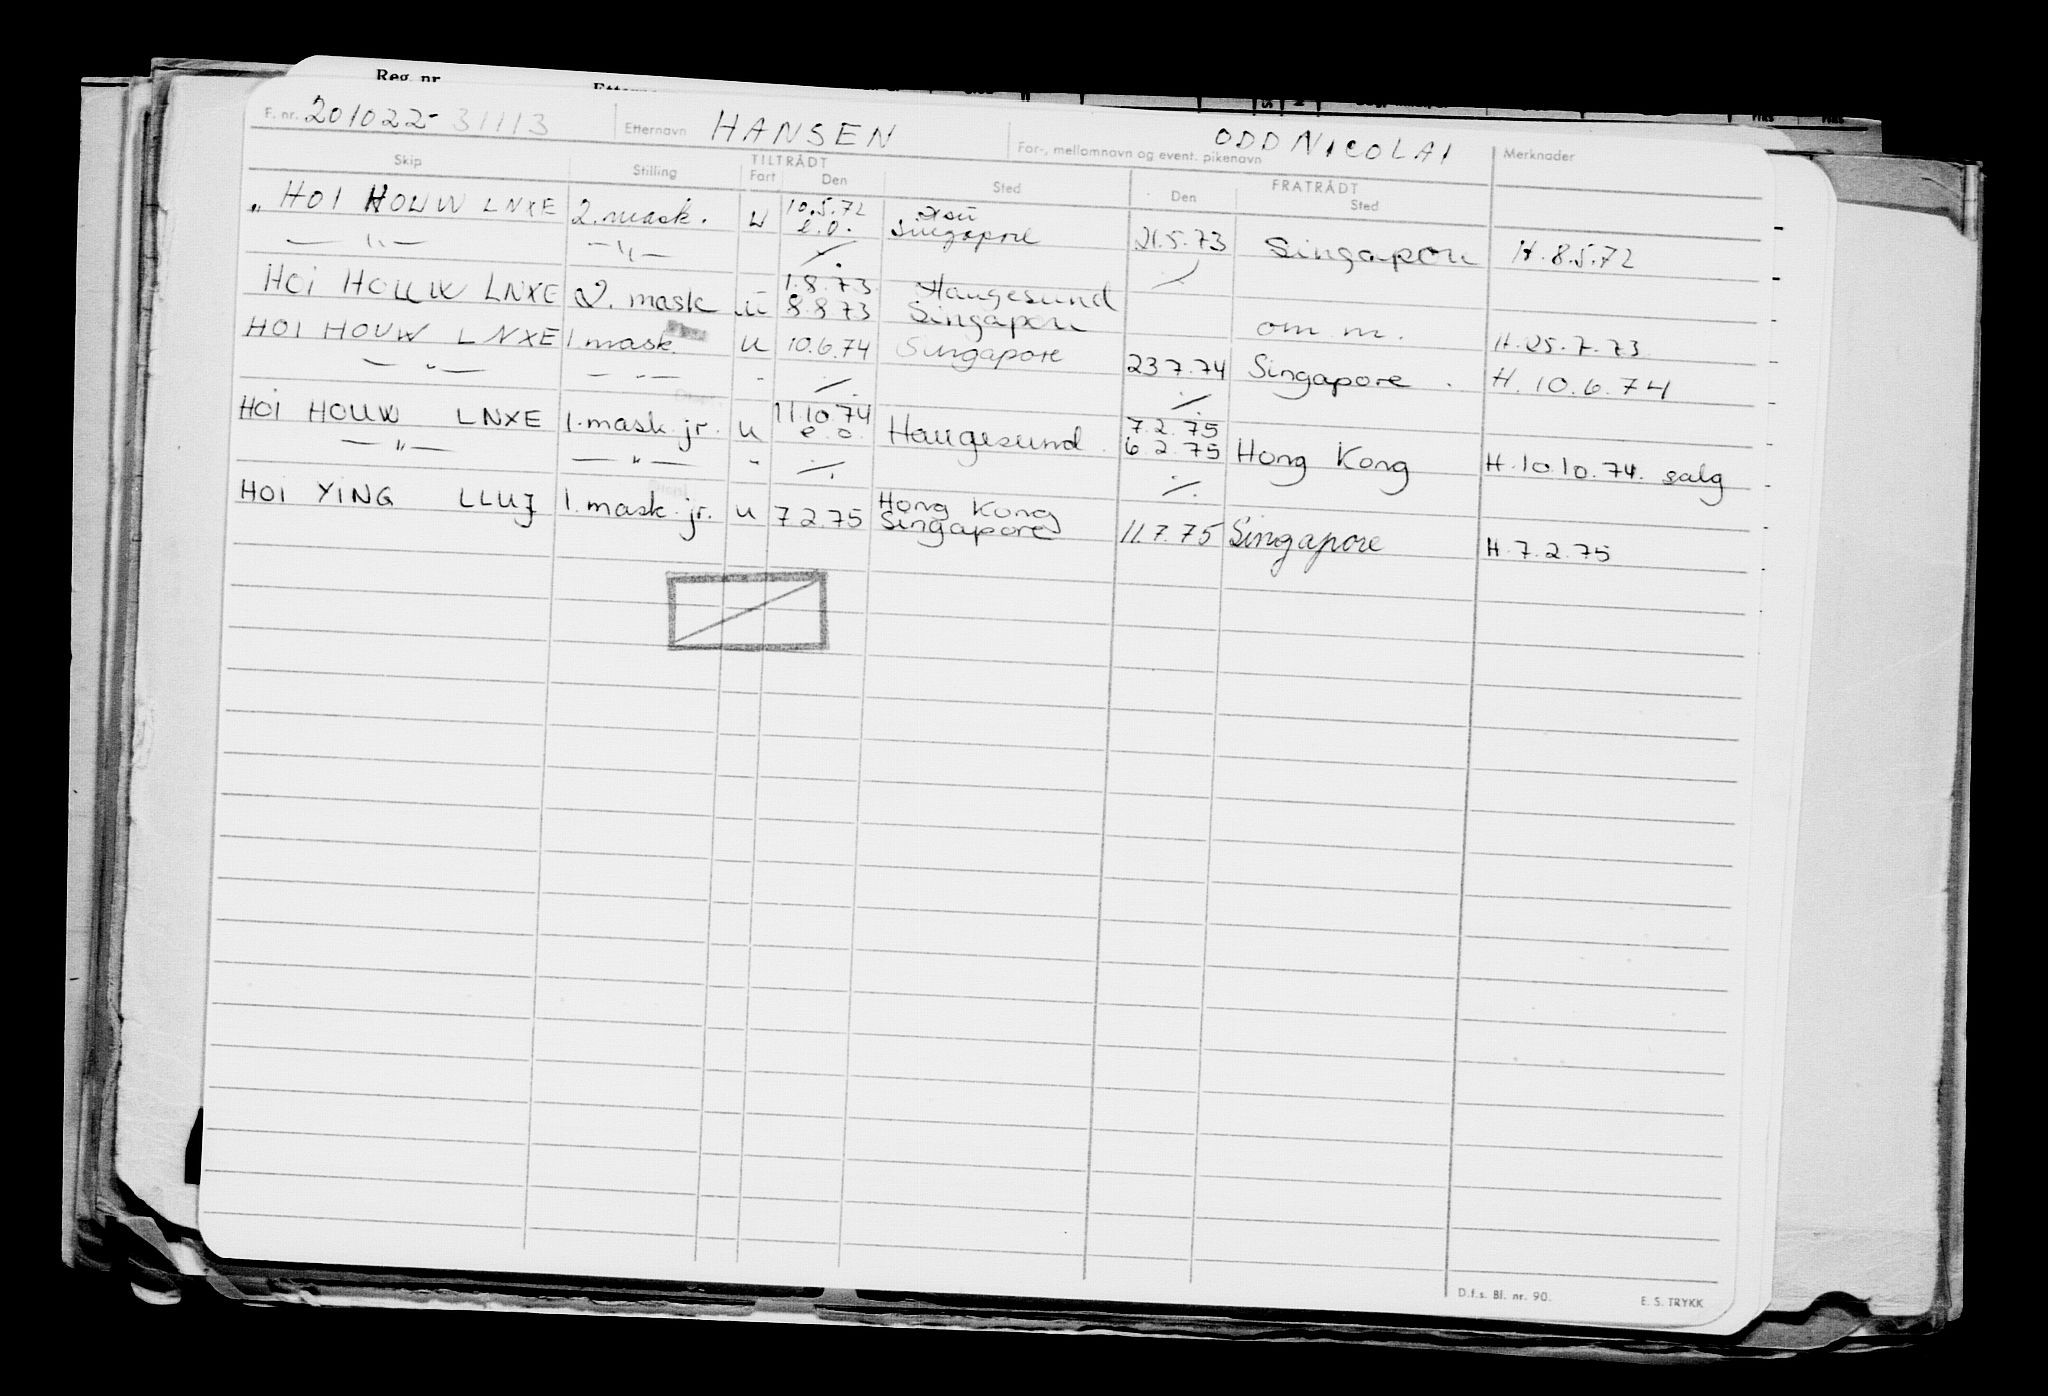 Reg. nr.
F. nr. 201022-31113 Etternavn HANSEN For-, mellomnavn og event. pikenavn ODD NICOLAI Merknader
TILTRÅDT FRATRÅDT
Skip Stilling Fart Den Sted Den Sted
" HOI HOUW LNXE 2. mask. u 10.5.72 e.o. Singapore 21.5.73 Singapore H. 8.5.72
— " — — " — ⁒ ⁒
HOI HOUW LNXE 2. mask u 1.8.73 Haugesund
8.8.73 Singapore om. m. H. 25.7.73
HOI HOUW LNXE 1. mask. u 10.6.74 Singapore 23.7.74 Singapore. H. 10.6.74
— " — — " — " ⁒ ⁒
HOI HOUW LNXE 1. mask. jr. u 11.10.74 e.o. Haugesund. 7.2.75
6.2.75 Hong Kong H. 10.10.74. salg
— " — — " — " ⁒ ⁒
HOI YING LLUJ 1. mask. jr. u 7.2.75 Hong Kong
Singapore 11.7.75 Singapore H. 7.2.75
D.f.s. Bl. nr. 90. E. S. TRYKK